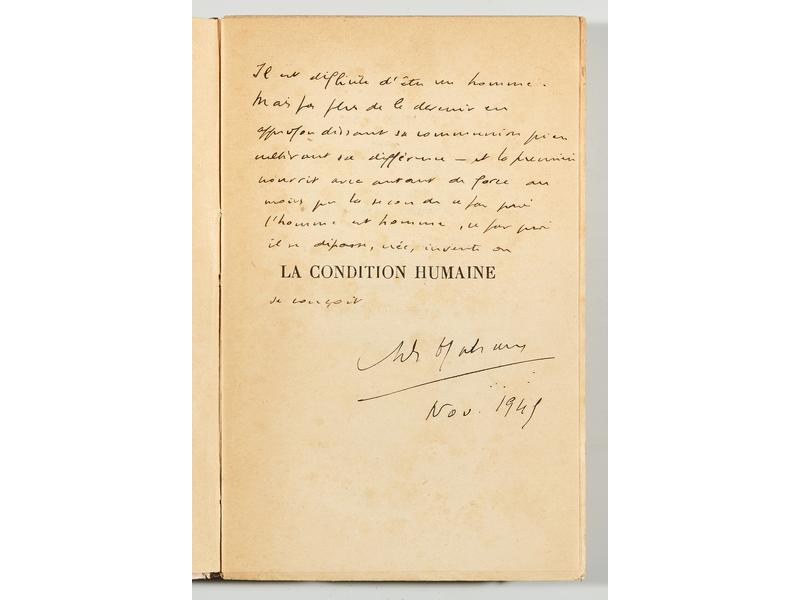 Il est difficile d'être un homme.
Mais pas plus de le devenir en
approfondissant sa communion qu'en
cultivant sa différence — et la première
nourrit avec autant de force au
moins que la seconde ce par quoi
l'homme est homme, ce par quoi
il se dépasse, crée, invente ou
LA CONDITION HUMAINE
se conçoit
André Malraux
Nov. 1945